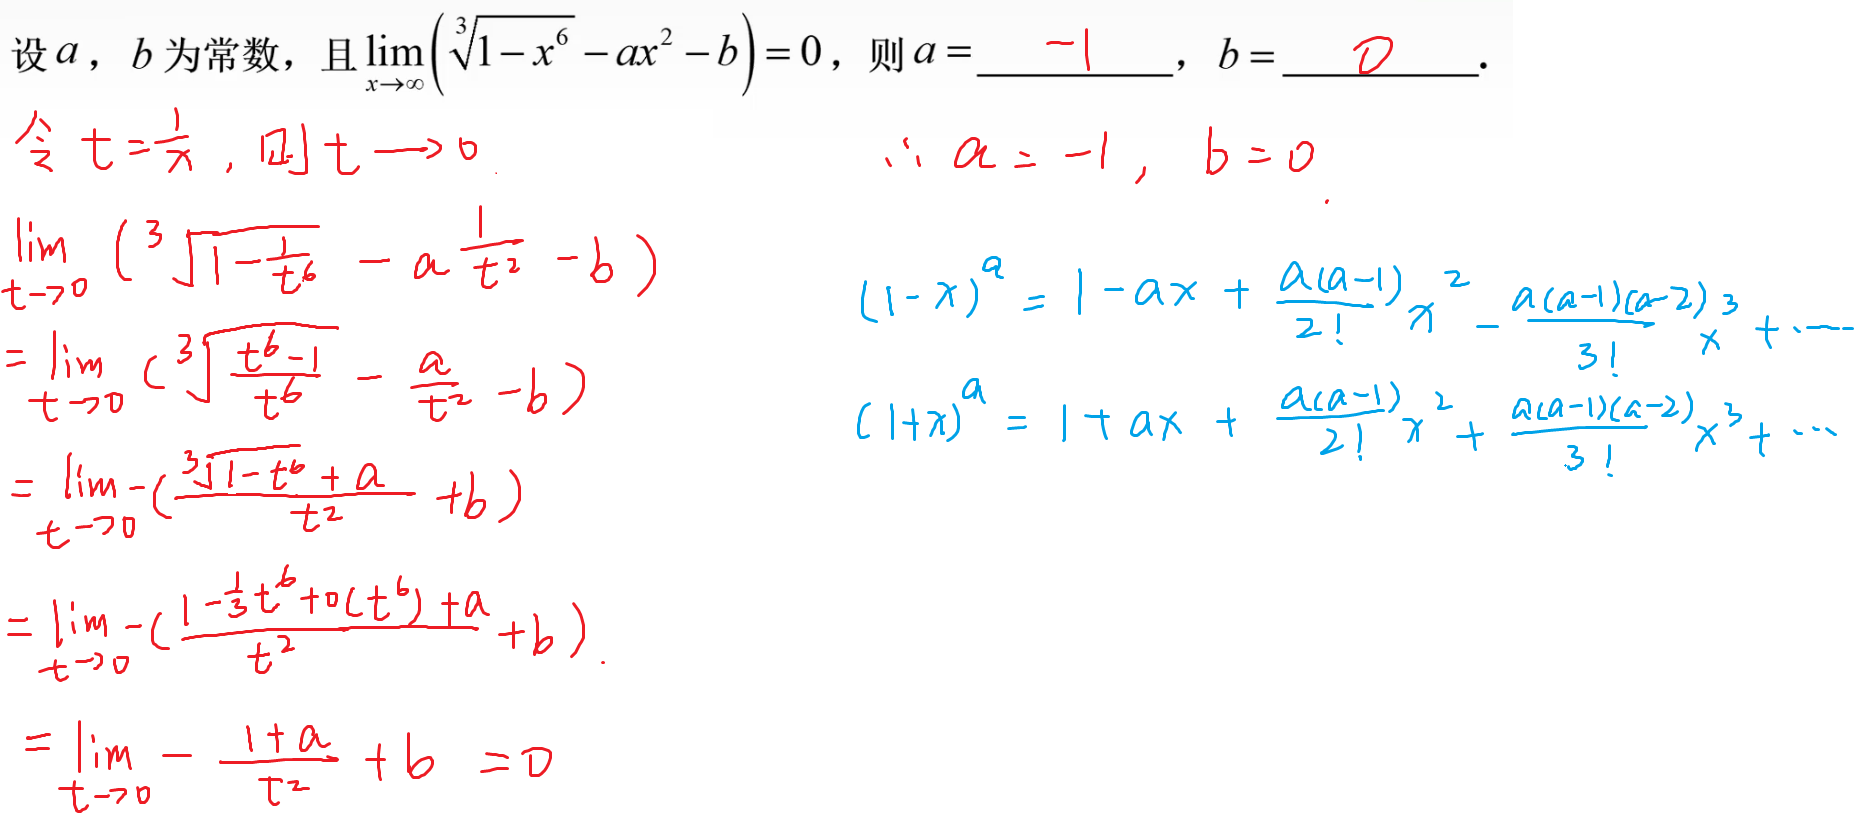 设 a，b 为常数，且 lim_{x→∞}(∛(1−x⁶) − ax² − b) = 0，则 a = −1，b = 0．
令 t = 1/x，则 t → 0.
lim_{t→0} (∛(1 − 1/t⁶) − a 1/t² − b)
= lim_{t→0} (∛((t⁶−1)/t⁶) − a/t² − b)
= lim_{t→0} −((∛(1−t⁶) + a)/t² + b)
= lim_{t→0} −((1 − 1/3 t⁶ + o(t⁶) + a)/t² + b).
= lim_{t→0} − (1+a)/t² + b = 0
∴ a = −1， b = 0.
(1−x)^a = 1 − ax + a(a−1)/2! x² − a(a−1)(a−2)/3! x³ + ⋯
(1+x)^a = 1 + ax + a(a−1)/2! x² + a(a−1)(a−2)/3! x³ + ⋯